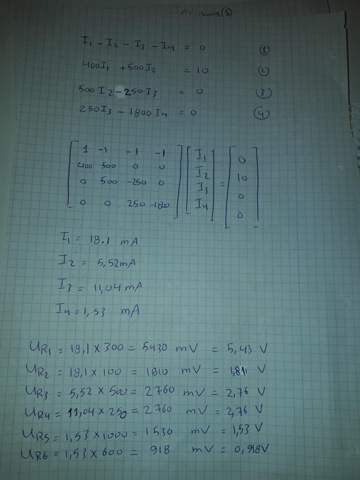 I1 - I2 - I3 - I4 = 0 (1)
400I1 + 500I2 = 10 (2)
500I2 - 250I3 = 0 (3)
250I3 - 1800I4 = 0 (4)
[1 -1 -1 -1] [I1] [0]
[400 500 0 0] [I2] [10]
[0 500 -250 0] [I3] = [0]
[0 0 250 -1800] [I4] [0]
I1 = 18.1 mA
I2 = 5,52 mA
I3 = 11,04 mA
I4 = 1,53 mA
UR1 = 18,1 x 300 = 5430 mV = 5,43 V
UR2 = 18,1 x 100 = 1810 mV = 1,81 V
UR3 = 5,52 x 500 = 2760 mV = 2,76 V
UR4 = 11,04 x 250 = 2760 mV = 2,76 V
UR5 = 1,53 x 1000 = 1530 mV = 1,53 V
UR6 = 1,53 x 600 = 918 mV = 0,918 V